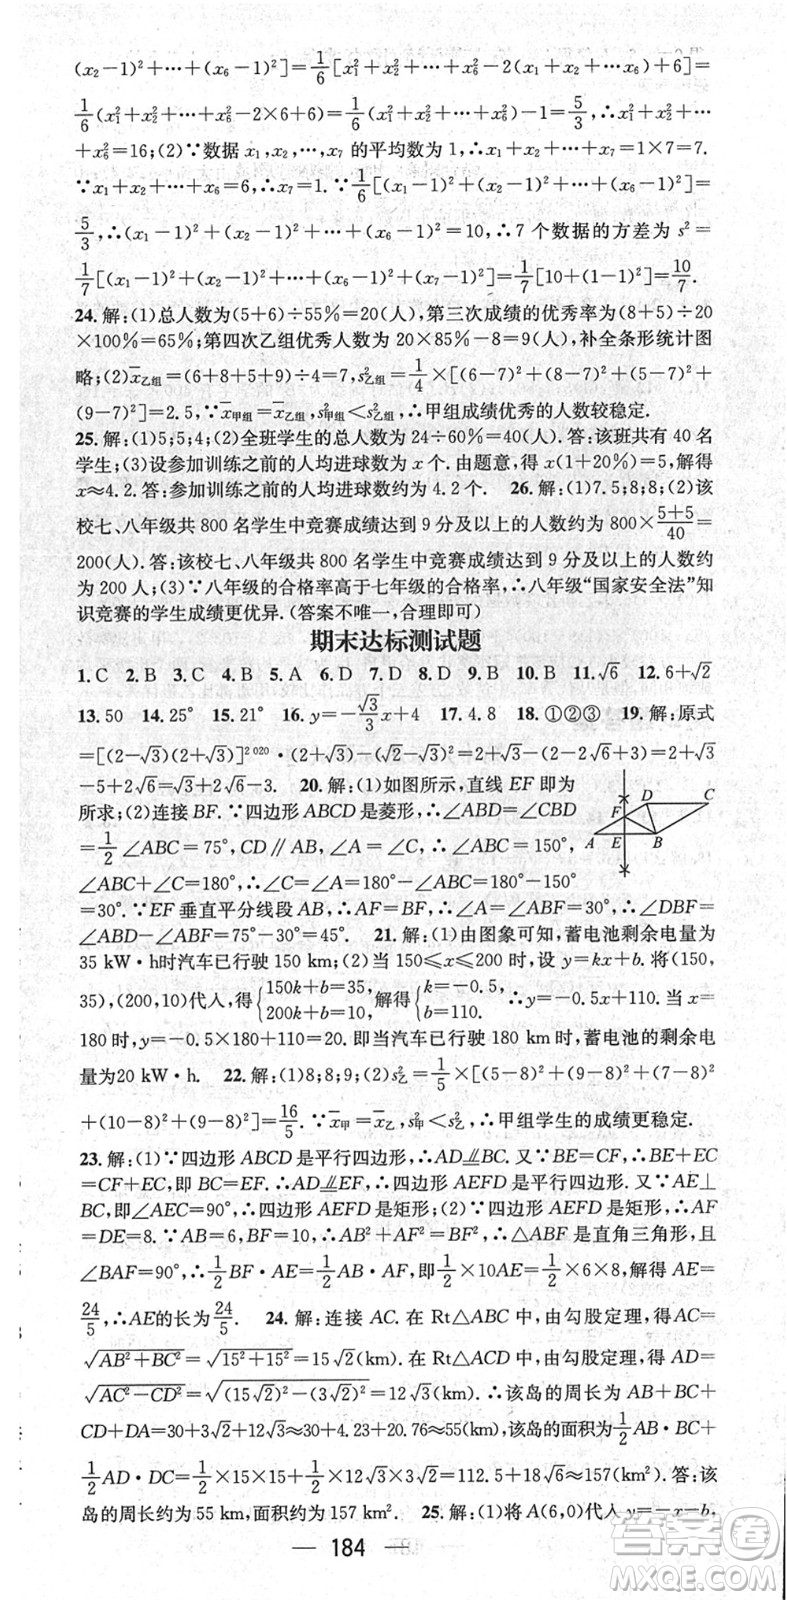 (x₂−1)²+⋯+(x₆−1)²]=1/6[x₁²+x₂²+⋯+x₆²−2(x₁+x₂+⋯x₆)+6]=
1/6(x₁²+x₂²+⋯+x₆²−2×6+6)=1/6(x₁²+x₂²+⋯+x₆²)−1=5/3,∴x₁²+x₂²+⋯
+x₆²=16;(2)∵数据 x₁,x₂,⋯,x₇ 的平均数为1,∴x₁+x₂+⋯+x₇=1×7=7.
∵x₁+x₂+⋯+x₆=6,∴x₇=1.∵1/6[(x₁−1)²+(x₂−1)²+⋯+(x₆−1)²]=
5/3,∴(x₁−1)²+(x₂−1)²+⋯+(x₆−1)²=10,∴7 个数据的方差为 s²=
1/7[(x₁−1)²+(x₂−1)²+⋯+(x₆−1)²+(x₇−1)²]=1/7[10+(1−1)²]=10/7.
24.解:(1)总人数为(5+6)÷55%=20(人),第三次成绩的优秀率为(8+5)÷20
×100%=65%;第四次乙组优秀人数为20×85%−8=9(人),补全条形统计图
略;(2)x̄乙组=(6+8+5+9)÷4=7,s²乙组=1/4×[(6−7)²+(8−7)²+(5−7)²+
(9−7)²]=2.5,∵x̄甲组=x̄乙组,s²甲组<s²乙组,∴甲组成绩优秀的人数较稳定.
25.解:(1)5;5;4;(2)全班学生的总人数为24÷60%=40(人).答:该班共有40名
学生;(3)设参加训练之前的人均进球数为 x 个.由题意,得 x(1+20%)=5,解得
x≈4.2.答:参加训练之前的人均进球数约为4.2个. 26.解:(1)7.5;8;8;(2)该
校七、八年级共800名学生中竞赛成绩达到9分及以上的人数约为800×(5+5)/40=
200(人).答:该校七、八年级共800名学生中竞赛成绩达到9分及以上的人数约
为200人;(3)∵八年级的合格率高于七年级的合格率,∴八年级“国家安全法”知
识竞赛的学生成绩更优异.(答案不唯一,合理即可)
期末达标测试题
1.C 2.B 3.C 4.B 5.A 6.D 7.D 8.D 9.B 10.B 11.√6 12.6+√2
13.50 14.25° 15.21° 16.y=−√3/3x+4 17.4.8 18.①②③ 19.解:原式
=[(2−√3)(2+√3)]²⁰²⁰·(2+√3)−(√2−√3)²=2+√3−(2−2√6+3)=2+√3
−5+2√6=√3+2√6−3. 20.解:(1)如图所示,直线 EF 即为
所求;(2)连接BF.∵四边形ABCD是菱形,∴∠ABD=∠CBD
=1/2∠ABC=75°,CD∥AB,∠A=∠C,∴∠ABC=150°,
∠ABC+∠C=180°,∴∠C=∠A=180°−∠ABC=180°−150°
=30°.∵EF垂直平分线段AB,∴AF=BF,∴∠A=∠ABF=30°,∴∠DBF=
∠ABD−∠ABF=75°−30°=45°. 21.解:(1)由图象可知,蓄电池剩余电量为
35 kW·h时汽车已行驶150 km;(2)当150≤x≤200时,设 y=kx+b.将(150,
35),(200,10)代入,得{150k+b=35,200k+b=10,解得{k=−0.5,b=110.∴y=−0.5x+110.当x=
180时,y=−0.5×180+110=20.即当汽车已行驶180 km时,蓄电池的剩余电
量为20 kW·h. 22.解:(1)8;8;9;(2)s²乙=1/5×[(5−8)²+(9−8)²+(7−8)²
+(10−8)²+(9−8)²]=16/5.∵x̄甲=x̄乙,s²甲<s²乙,∴甲组学生的成绩更稳定.
23.解:(1)∵四边形ABCD是平行四边形,∴AD⫽BC.又∵BE=CF,∴BE+EC
=CF+EC,即BC=EF.∴AD⫽EF.∴四边形AEFD是平行四边形.又∵AE⊥
BC,即∠AEC=90°,∴四边形AEFD是矩形;(2)∵四边形AEFD是矩形,∴AF
=DE=8.∵AB=6,BF=10,∴AB²+AF²=BF².∴△ABF是直角三角形,且
∠BAF=90°.∴1/2BF·AE=1/2AB·AF,即1/2×10AE=1/2×6×8,解得AE=
24/5,∴AE的长为24/5. 24.解:连接AC.在Rt△ABC中,由勾股定理,得AC=
√(AB²+BC²)=√(15²+15²)=15√2(km).在Rt△ACD中,由勾股定理,得AD=
√(AC²−CD²)=√((15√2)²−(3√2)²)=12√3(km).∴该岛的周长为AB+BC+
CD+DA=30+3√2+12√3=30+4.23+20.76≈55(km),该岛的面积为1/2AB·BC+
1/2AD·DC=1/2×15×15+1/2×12√3×3√2=112.5+18√6≈157(km²).答:该
岛的周长约为55 km,面积约为157 km². 25.解:(1)将A(6,0)代入 y=−x−b,
D
C
F
A
E
B
184
答案圈
MXQE.COM